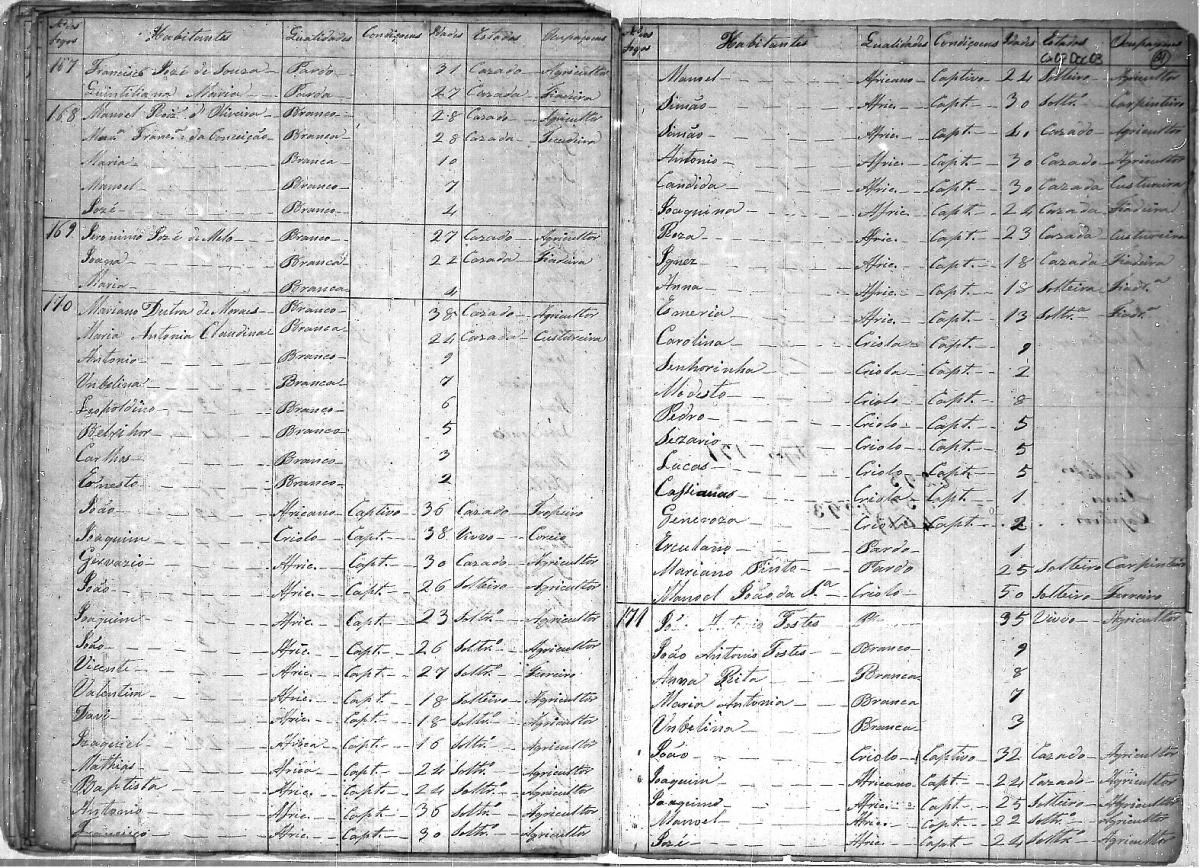 Nos dos fogos Habitantes Qualidades Condiçoens Idades Estados Ocupaçoens
167 Francisco Jozé de Souza Pardo 31 Cazado Agricultor
Quintiliana Maria Parda 27 Cazada Fiadeira
168 Manoel Roiz d'Oliveira Branco 28 Cazado Agricultor
Mara Franca da Conceição Branca 28 Cazada
Maria Branca 10
Manoel Branco 7
Jozé Branco 4
169 Jeronimo Jozé de Melo Branco 27 Cazado Agricultor
Joana Branca 22 Cazada Fiadeira
Maria Branca 4
170 Mariano Dutra de Moraes Branco 38 Cazado Agricultor
Maria Antonia Claudina Branca 24 Cazada Custureira
Antonio Branco 9
Unbelina Branca 7
Leopoldino Branco 6
Belxihor Branco 5
Carlhos Branco 3
Ernesto Branco 2
João Africano Captivo 36 Cazado Tropeiro
Joaquim Criolo Capt. 38 Viuvo
Gervazio Afric. Capt. 30 Cazado Agricultor
João Afric. Capt. 26 Solteiro Agricultor
Joaquim Afric. Capt. 23 Soltro Agricultor
João Afric. Capt. 26 Soltro Agricultor
Vicente Afric. Capt. 27 Soltro Ferreiro
Valentim Afric. Capt. 18 Solteiro Agricultor
Davi Afric. Capt. 18 Soltro Agricultor
Izaquiel Africa Capt. 16 Soltro Agricultor
Mathias Africa Capt. 24 Soltro Agricultor
Baptista Afric. Capt. 24 Soltro Agricultor
Antonio Afric. Capt. 36 Soltro Agricultor
Francisco Afric. Capt. 30 Soltro Agricultor
Nos dos fogos Habitantes Qualidades Condiçoens Idades Estados Ocupaçoens
Manoel Africano Captivo 24 Solteiro Agricultor
Simão Afric. Capt. 30 Soltro Carpinteiro
Simão Afric. Capt. 40 Cazado Agricultor
Antonio Afric. Capt. 30 Cazado Agricultor
Candida Afric. Capt. 30 Cazada Custureira
Joaquina Afric. Capt. 24 Cazada Fiadeira
Roza Afric. Capt. 23 Cazada Custureira
Ignez Afric. Capt. 18 Cazada Fiadeira
Anna Afric. Capt. 18 Solteira Fiada
Afric. Capt. 13 Soltra Fiada
Carolina Criola Capt. 9
Senhorinha Criola Capt. 2
Modesto Criolo Capt. 8
Pedro Criolo Capt. 5
Sezario Criolo Capt. 5
Lucas Criolo Capt. 5
Criola Capt. 1
Generoza Criola Capt. 2
Erculano Pardo 1
Mariano Pinto Pardo 25 Solteiro Carpinteiro
Manoel João da Sa Criolo 50 Solteiro Ferreiro
171 Antonio Fostes 35 Viuvo Agricultor
João Antonio Fostes Branco 9
Anna Rita Branca 8
Maria Antonia Branca 7
Unbelina Branca 3
João Criolo Captivo 32 Cazado Agricultor
Joaquim Africano Capt. 24 Cazado Agricultor
Joaquim Afric. Capt. 25 Solteiro Agricultor
Manoel Afric. Capt. 22 Soltro Agricultor
Jozé Afric. Capt. 24 Soltro Agricultor